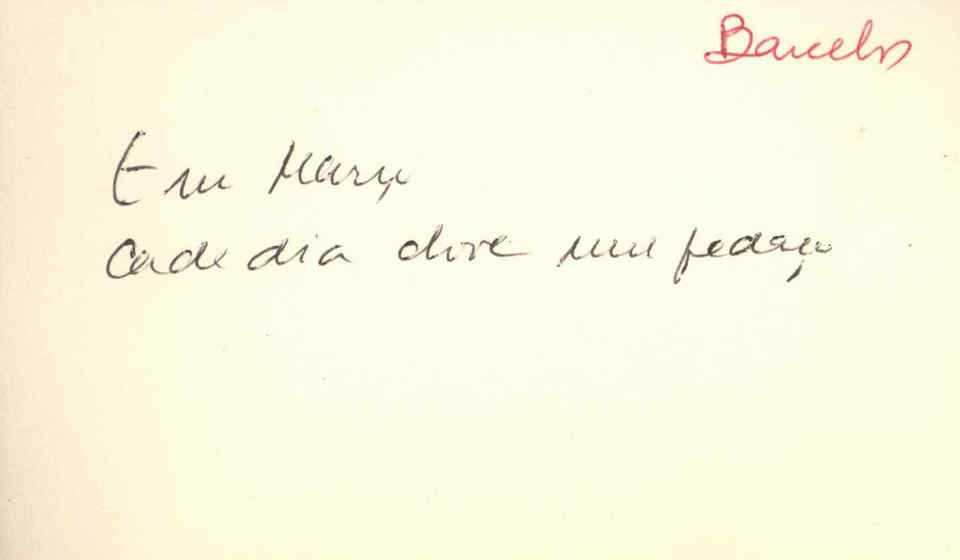 Barcelos
Em Março
Cada dia chove um pedaço